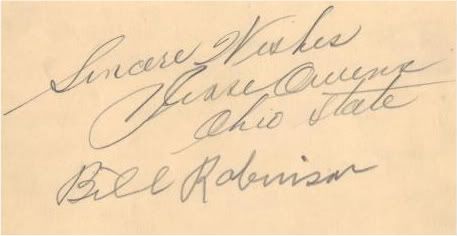 Sincere Wishes
Jesse Owens
Ohio State
Bill Robinson